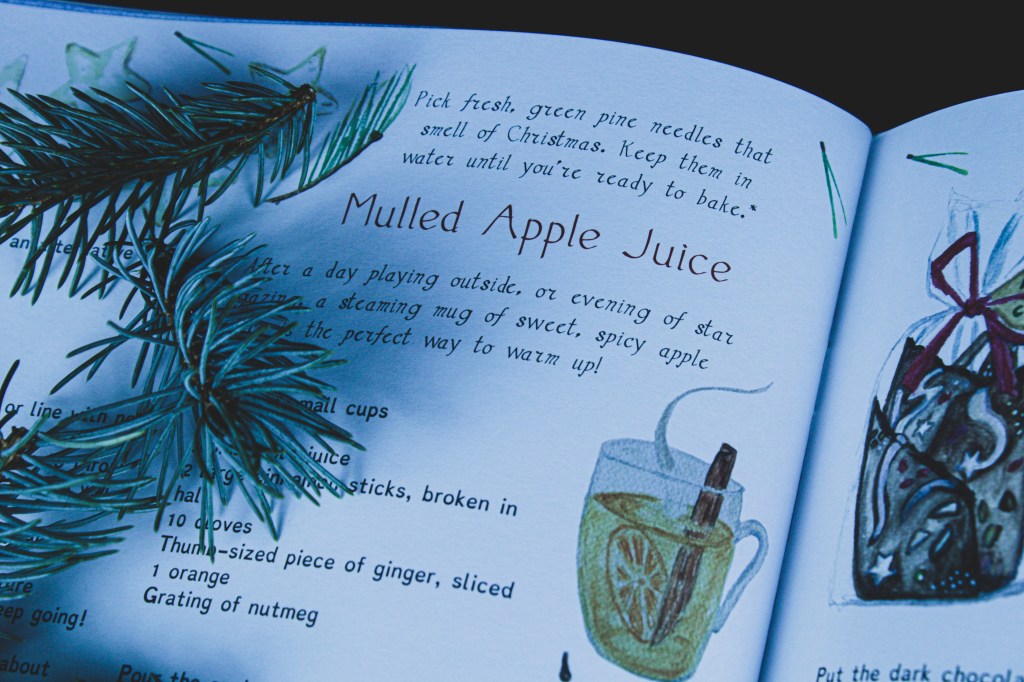 Pick fresh, green pine needles that
smell of Christmas. Keep them in
water until you're ready to bake.*
Mulled Apple Juice
After a day playing outside, or evening of star
gazing, a steaming mug of sweet, spicy apple
the perfect way to warm up!
small cups
juice
2 large cinnamon sticks, broken in
hal
10 cloves
Thumb-sized piece of ginger, sliced
1 orange
Grating of nutmeg
Pour the
an alternative
or line with
eep going!
about
Put the dark chocola